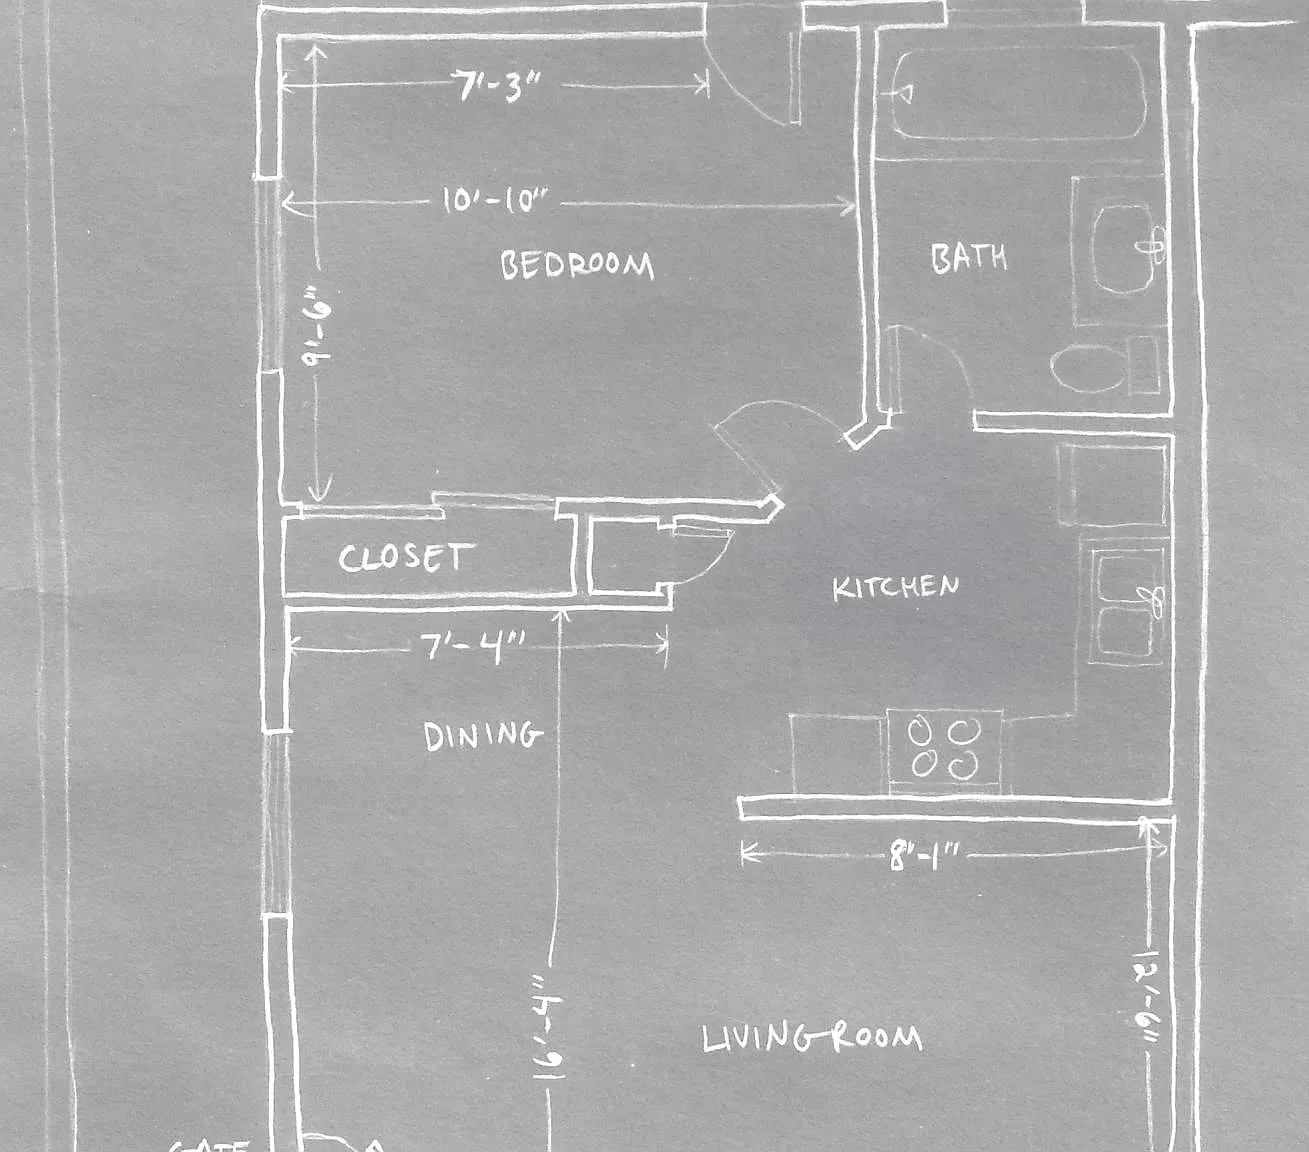 7'-3"
10'-10"
BEDROOM
BATH
9'-6"
CLOSET
KITCHEN
7'-4"
DINING
8'-1"
12'-6"
LIVING ROOM
GATE